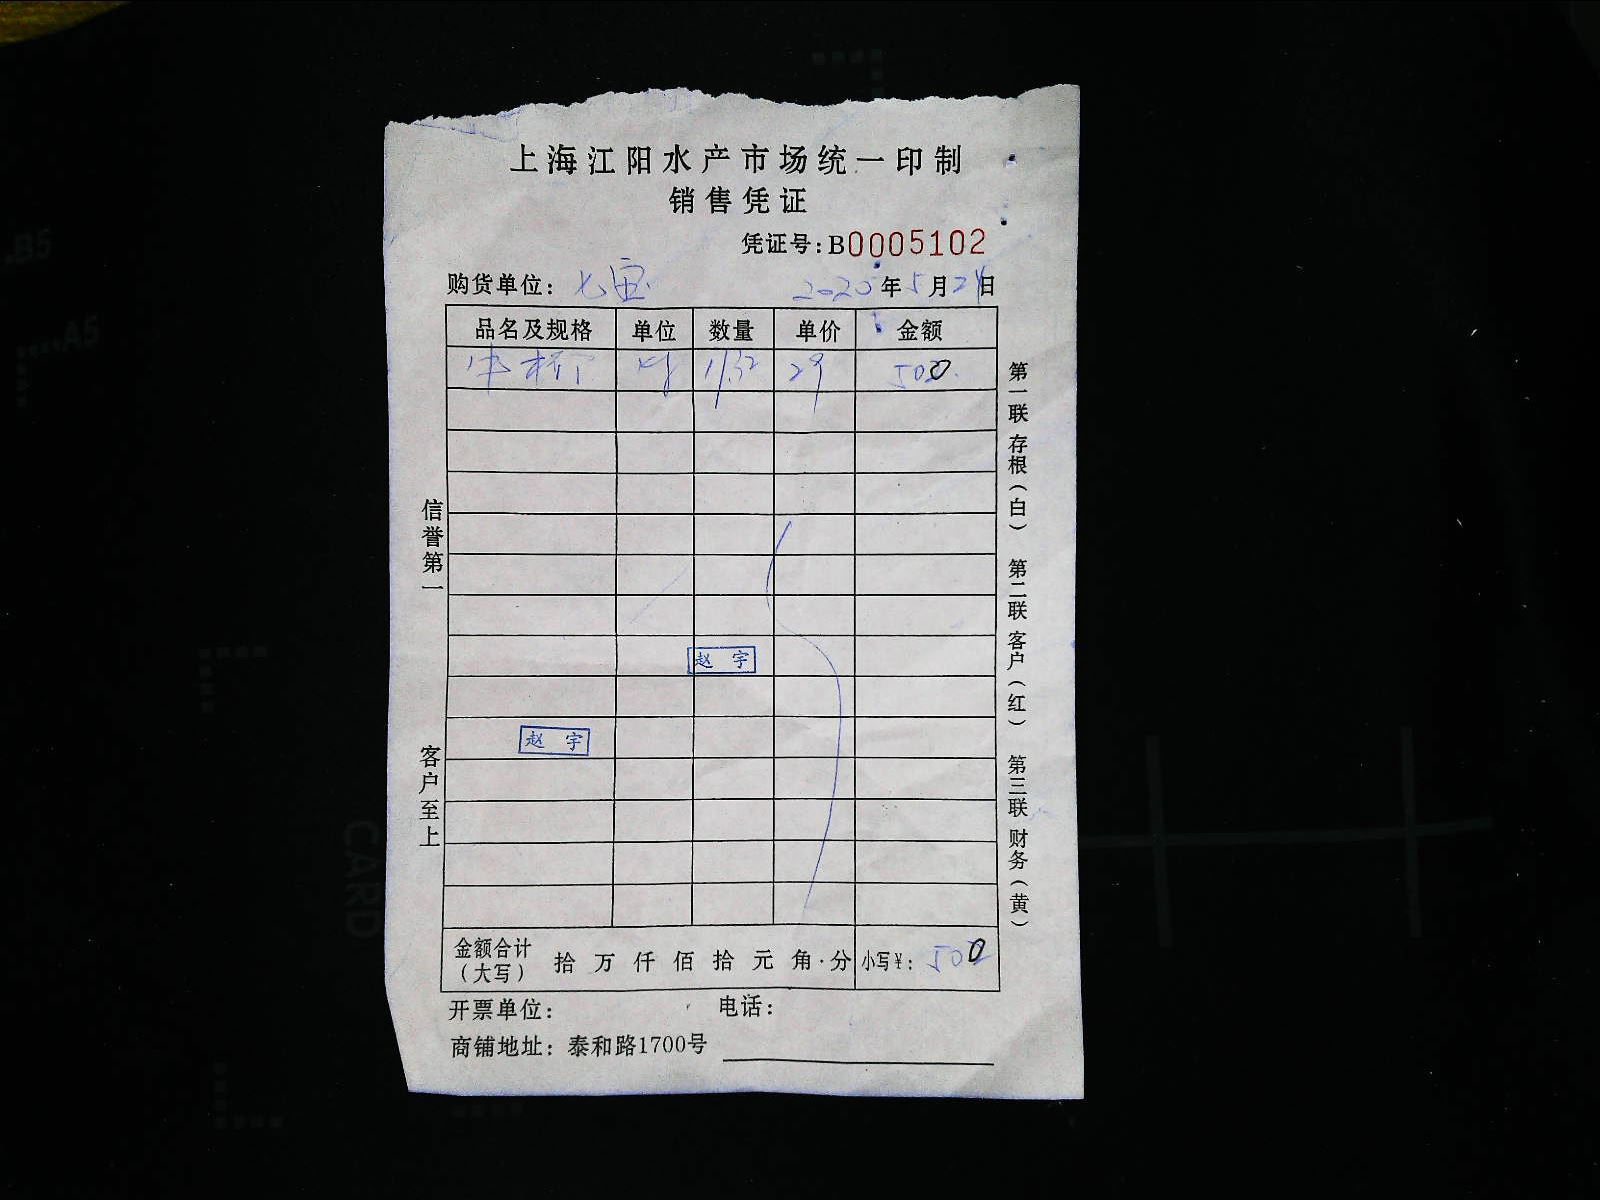 上海江阳水产市场统一印制
销售凭证
凭证号:B0005102
购货单位: 七宝 2025年5月24日
品名及规格 单位 数量 单价 金额
29 500
信誉第一
客户至上
第一联 存根(白) 第二联 客户(红) 第三联 财务(黄)
赵 宇
赵 宇
金额合计(大写) 拾 万 仟 佰 拾 元 角 分 小写¥: 500
开票单位: 电话:
商铺地址: 泰和路1700号
B5
A5
CARD